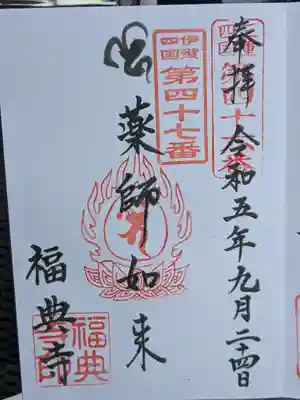 奉拝
令和五年九月二十四日
伊賀
四国
第四十七番
薬師如来
福典寺
福典
寺印